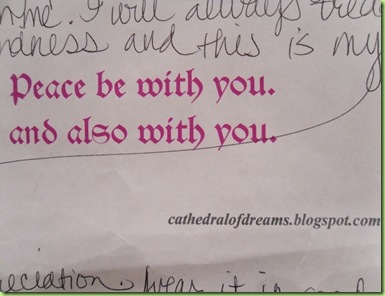 me. I will always
ndness and this is my
Peace be with you.
and also with you.
cathedralofdreams.blogspot.com
reciation. Wear it in